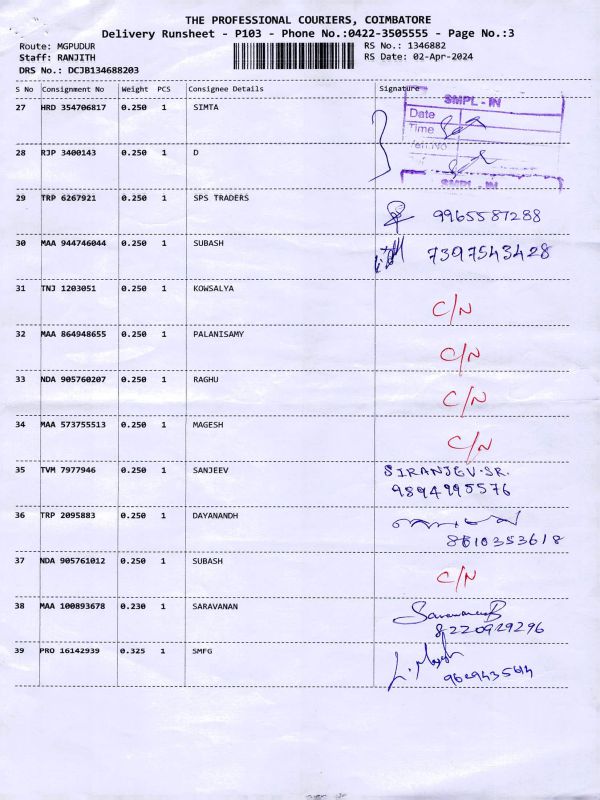 THE PROFESSIONAL COURIERS, COIMBATORE
Delivery Runsheet - P103 - Phone No.:0422-3505555 - Page No.:3
Route: MGPUDUR RS No.: 1346882
Staff: RANJITH RS Date: 02-Apr-2024
DRS No.: DCJB134688203
S No Consignment No Weight PCS Consignee Details Signature
SMPL - IN
Date
27 HRD 354706817 0.250 1 SIMTA
Time
28 RJP 3400143 0.250 1 D
SMPL - IN
29 TRP 6267921 0.250 1 SPS TRADERS
9965587288
30 MAA 944746044 0.250 1 SUBASH 7397543428
31 TNJ 1203051 0.250 1 KOWSALYA
C/N
32 MAA 864948655 0.250 1 PALANISAMY
C/N
33 NDA 905760207 0.250 1 RAGHU
C/N
34 MAA 573755513 0.250 1 MAGESH
C/N
35 TVM 7977946 0.250 1 SANJEEV SIRANJEV.SR.
9894995576
36 TRP 2095883 0.250 1 DAYANANDH
8610353618
37 NDA 905761012 0.250 1 SUBASH
C/N
38 MAA 100893678 0.230 1 SARAVANAN
8220929296
39 PRO 16142939 0.325 1 SMFG